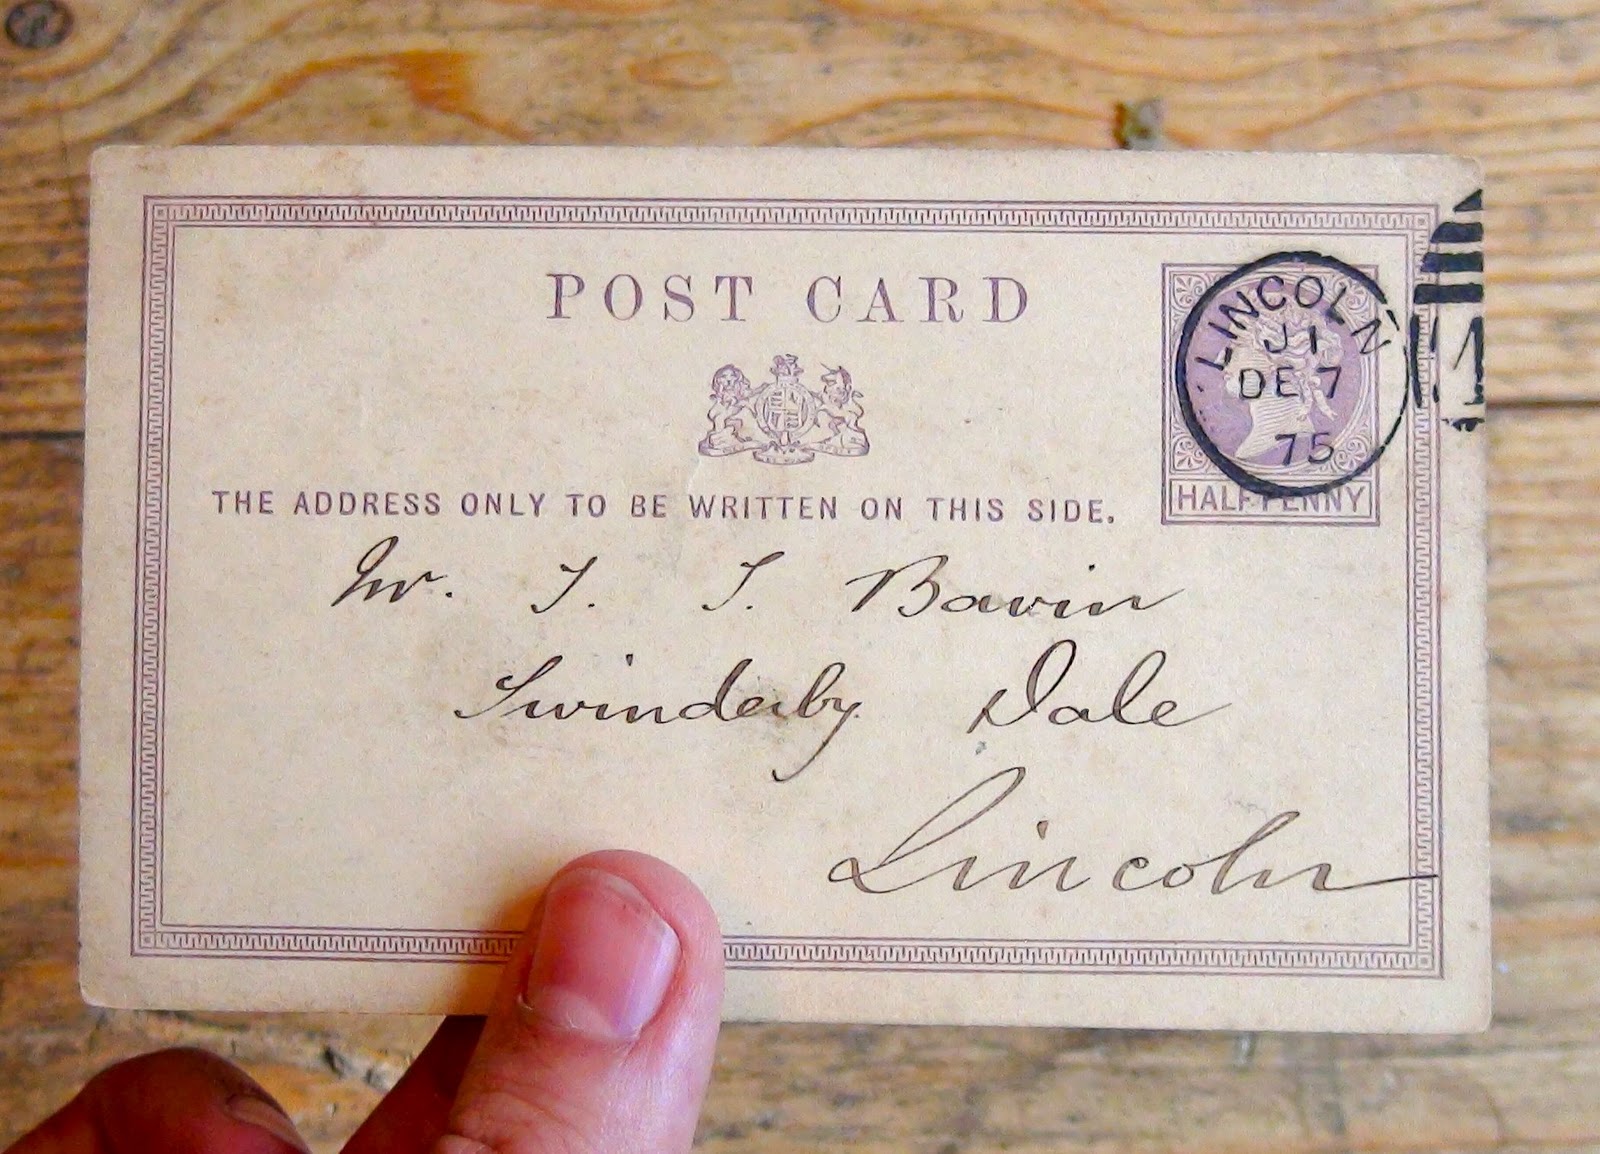 POST CARD
THE ADDRESS ONLY TO BE WRITTEN ON THIS SIDE.
LINCOLN
J1
DE 7
75
HALFPENNY
Mr. T. T. Bavin
Swinderby Dale
Lincoln